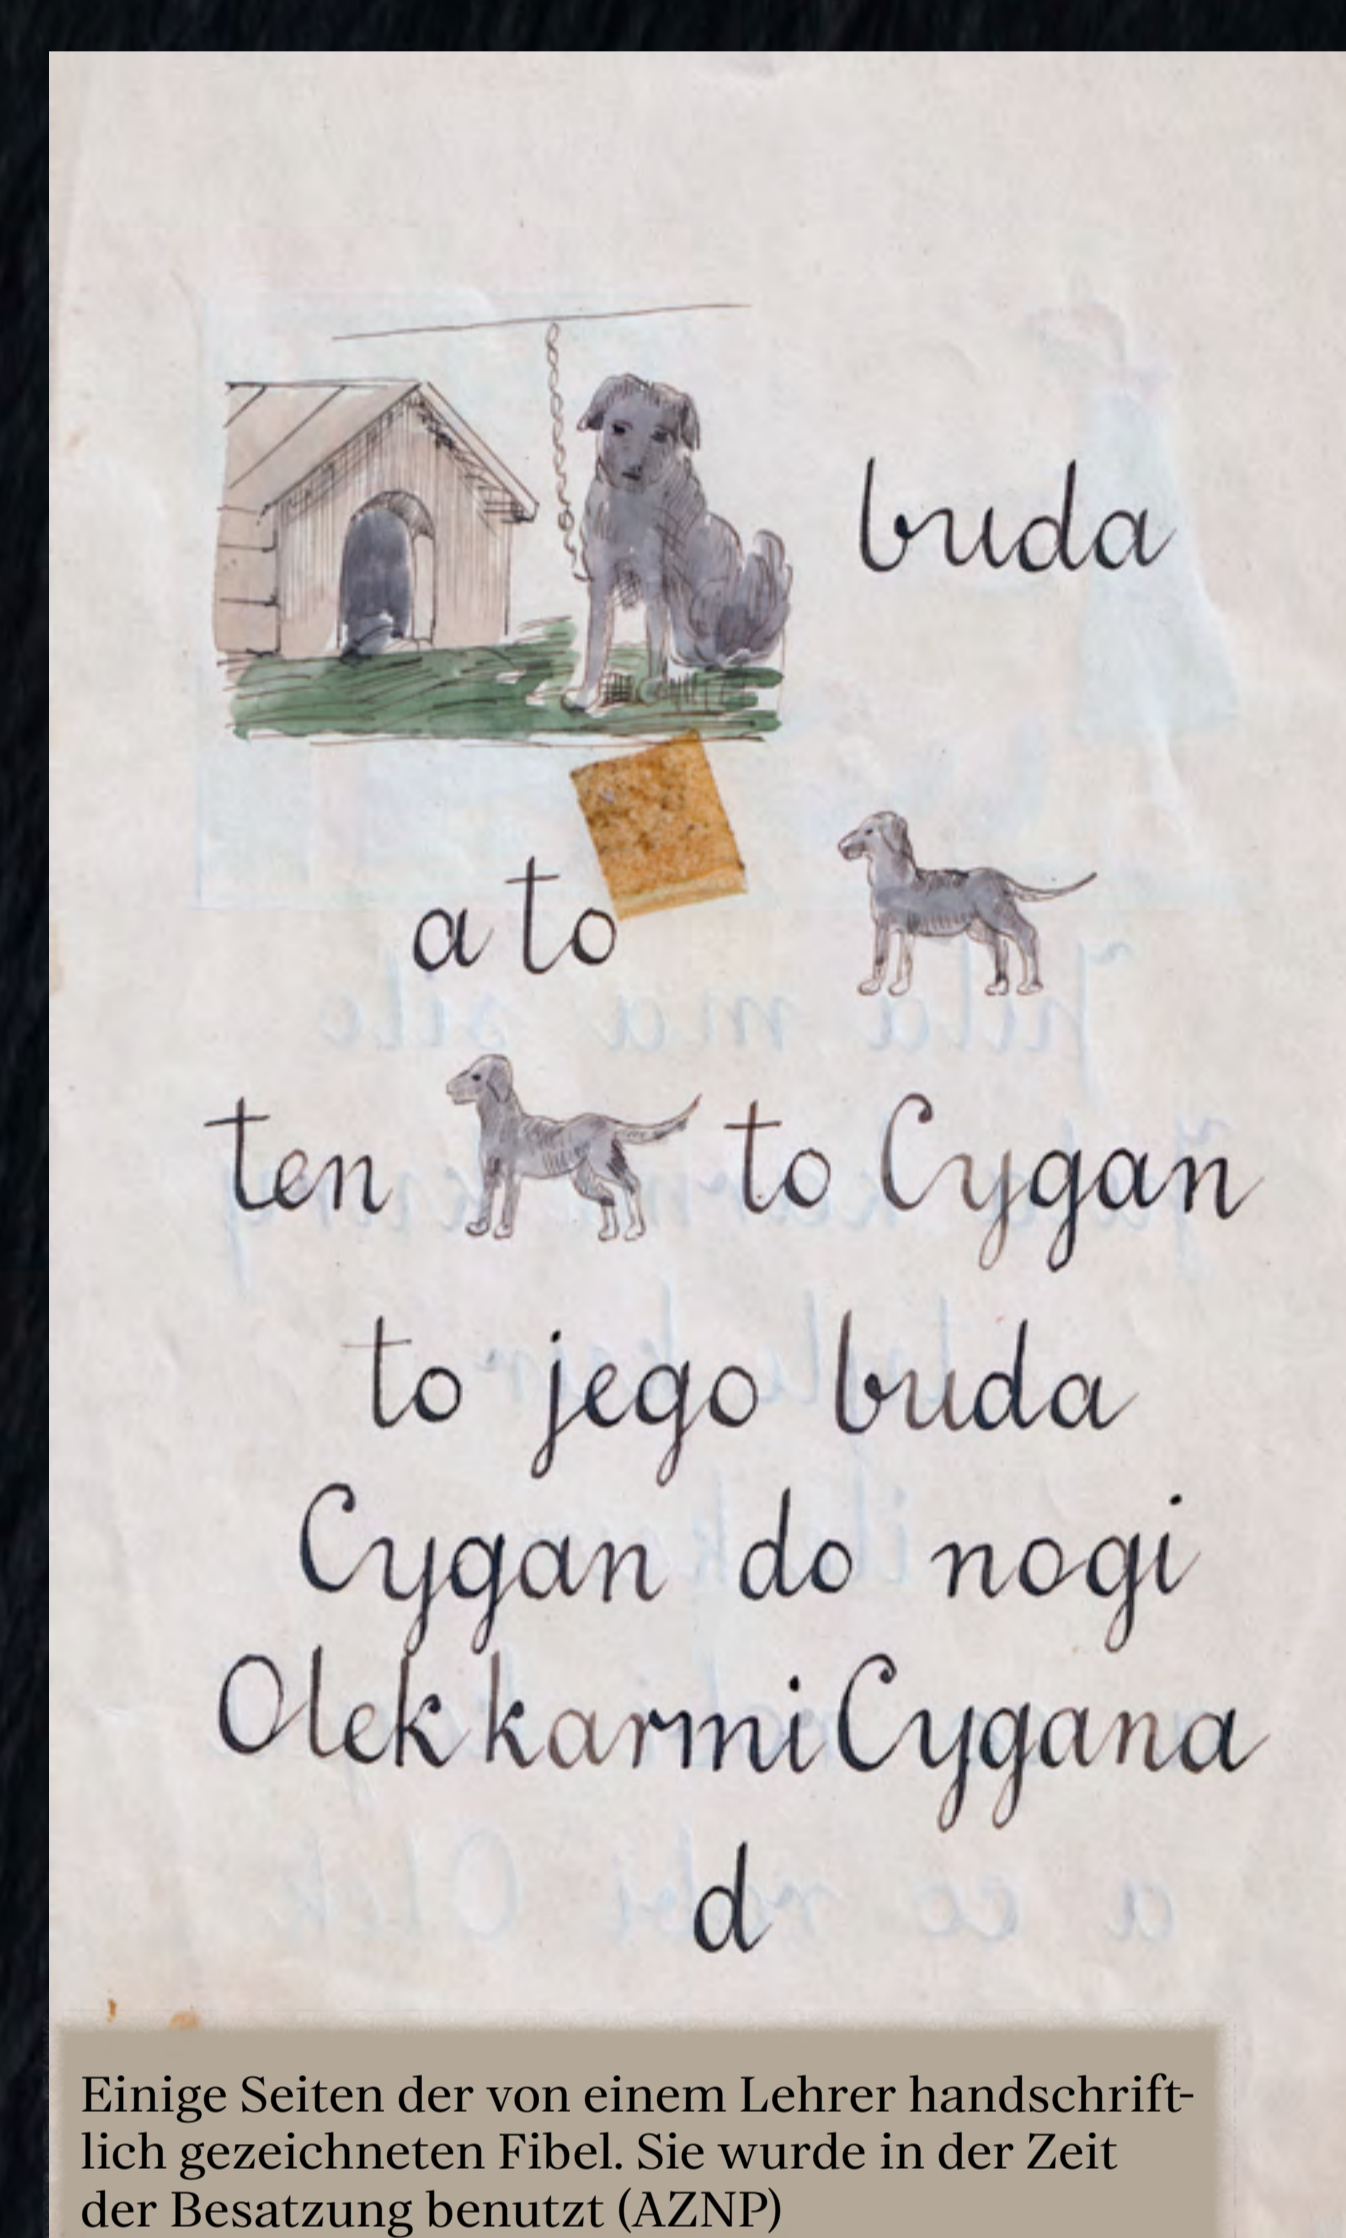 buda
a to
ten to Cygan
to jego buda
Cygan do nogi
Olek karmi Cygana
d
Einige Seiten der von einem Lehrer handschrift-
lich gezeichneten Fibel. Sie wurde in der Zeit
der Besatzung benutzt (AZNP)